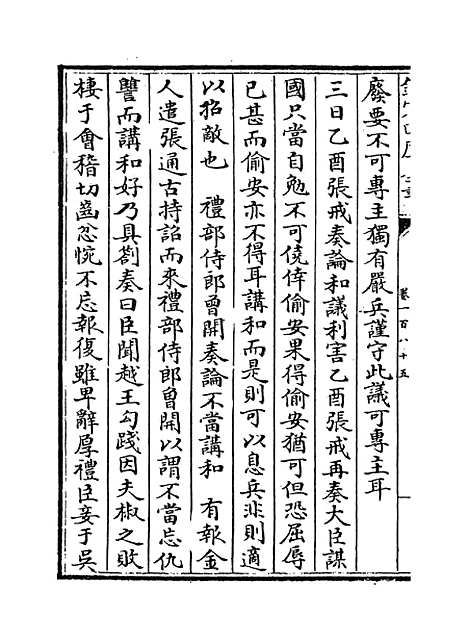 欽定四庫全書
卷一百八十五
廢要不可專主獨有嚴兵謹守此議可專主耳
三日乙酉張戒奏論和議利害乙酉張戒再奏大臣謀
國只當自勉不可僥倖偷安果得偷安猶可但恐屈辱
已甚而偷安亦不得耳講和而是則可以息兵非則適
以招敵也 禮部侍郎曾開奏論不當講和 有報金
人遣張通古持詔而來禮部侍郎曾開以謂不當忘仇
讐而講和好乃具劄奏曰臣聞越王勾踐因夫椒之敗
棲于會稽切齒忿惋不忘報復雖卑辭厚禮臣妾于吳